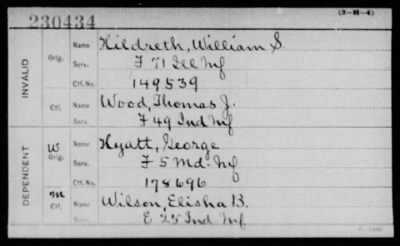 230434
(3-H-4)
INVALID
Orig.
Name Hildreth, William S.
Serv. F 71 Ill Inf
Ctf. No. 149539
Ctf.
Name Wood, Thomas J.
Serv. F 49 Ind Inf
DEPENDENT
W
Orig.
Name Hyatt, George
Serv. F 5 Md. Inf
Ctf. No. 178696
M
Ctf.
Name Wilson, Elisha B.
Serv. E 25 Ind Inf